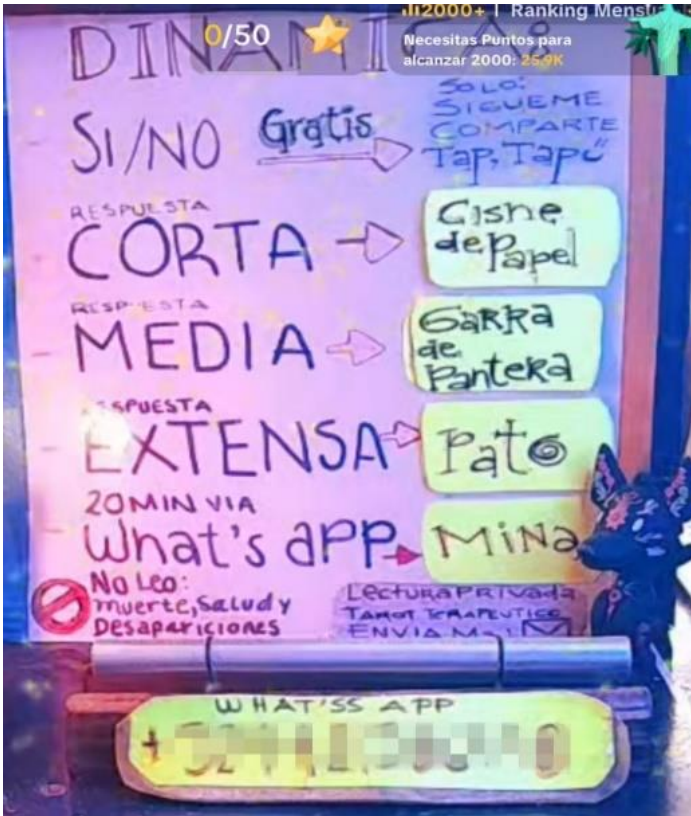 2000+ | Ranking Mensual
0/50
Necesitas Puntos para
alcanzar 2000: 25.9K
DINAMICAS
SI/NO Gratis
SOLO:
SIGUEME
COMPARTE
TAP, TAP
RESPUESTA
CORTA
Cisne
de Papel
RESPUESTA
MEDIA
GARRA
de
Pantera
RESPUESTA
EXTENSA
Pato
20 MIN VIA
What's app
MiNa
No Leo:
muerte, Salud y
Desapariciones
LECTURA PRIVADA
TAROT TERAPEUTICO
ENVIA
WHAT'SS APP